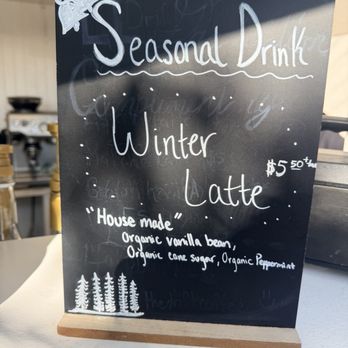 Seasonal Drink
Winter
Latte
$5.50+tax
"House made"
Organic vanilla bean,
Organic cane sugar, Organic Peppermint